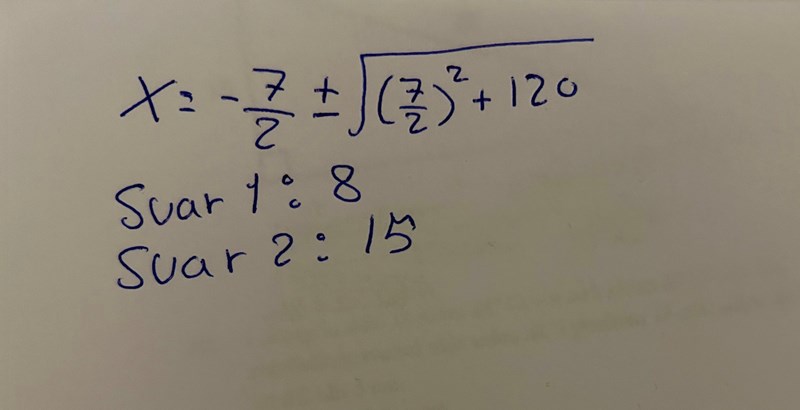 X = -7/2 ± √((7/2)² + 120)
Svar 1: 8
Svar 2: 15